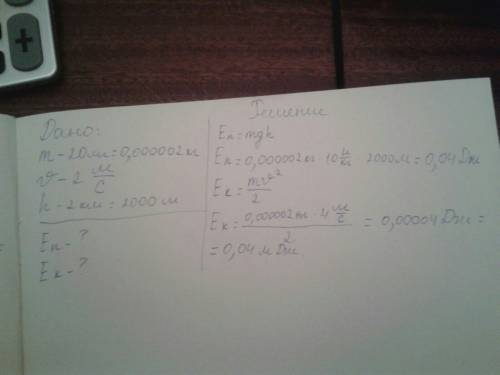 Дано:
m - 20 мг = 0,000002 кг
v - 2 м/с
h - 2 км = 2000 м
Eп - ?
Eк - ?
Решение
Eп = mgh
Eп = 0,000002 кг · 10 Н/кг · 2000 м = 0,04 Дж
Eк = mv²/2
Eк = 0,000002 кг · 4 м/с / 2 = 0,00004 Дж =
= 0,04 м Дж